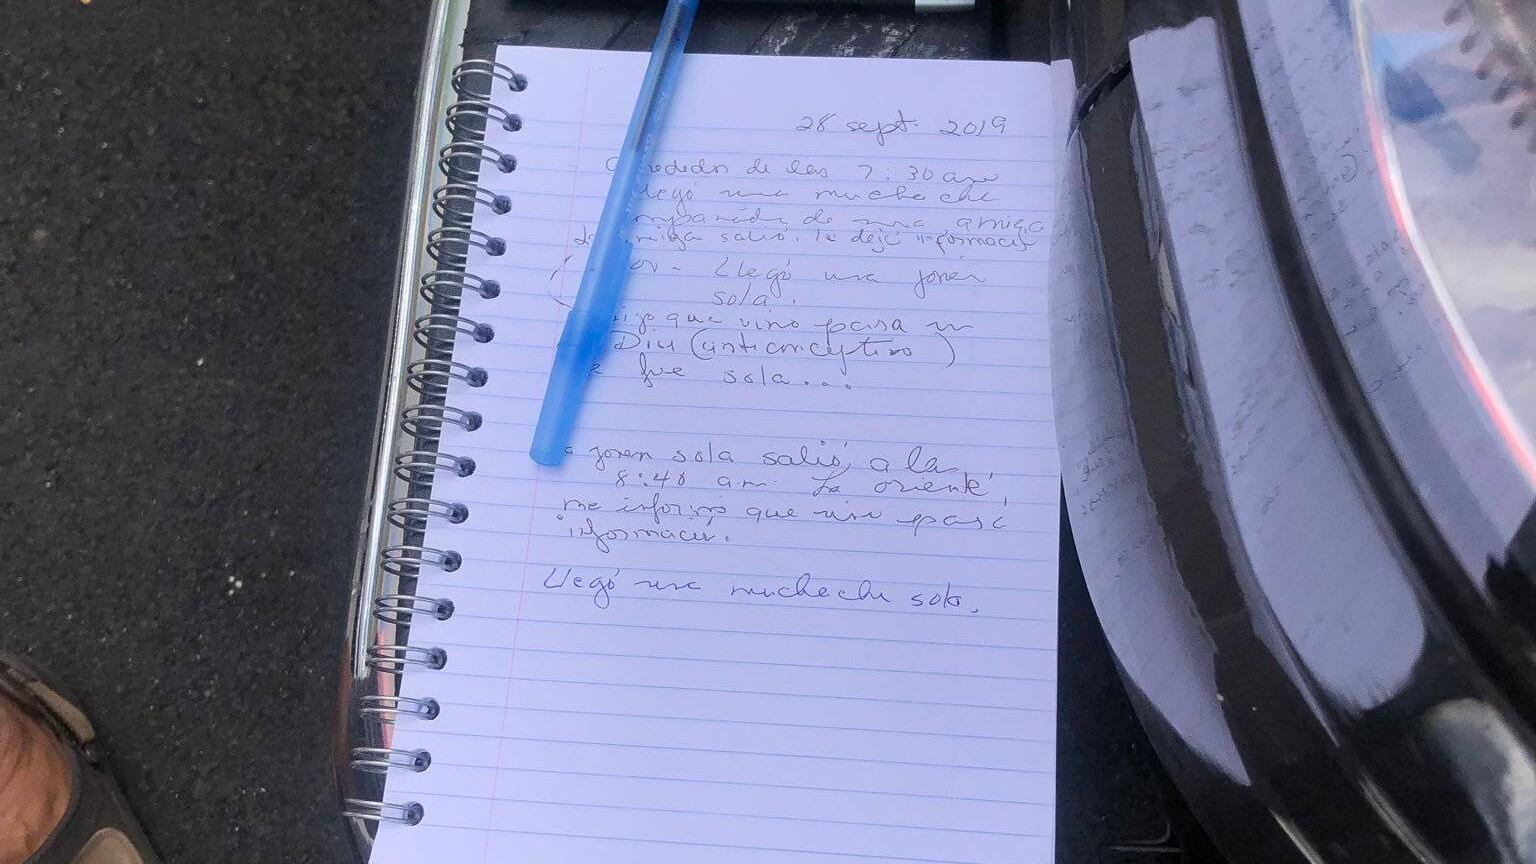 28 sept. 2019
de las 7:30 am
una muchacha
de una amiga
amiga salió. le dejé información
Llegó una joven
sola.
que vino para un
Diu (anticonceptivo)
fue sola...
a joven sola salió a la
8:40 a.m. La orienté,
me informó que vino para
información.
Llegó una muchacha sola.